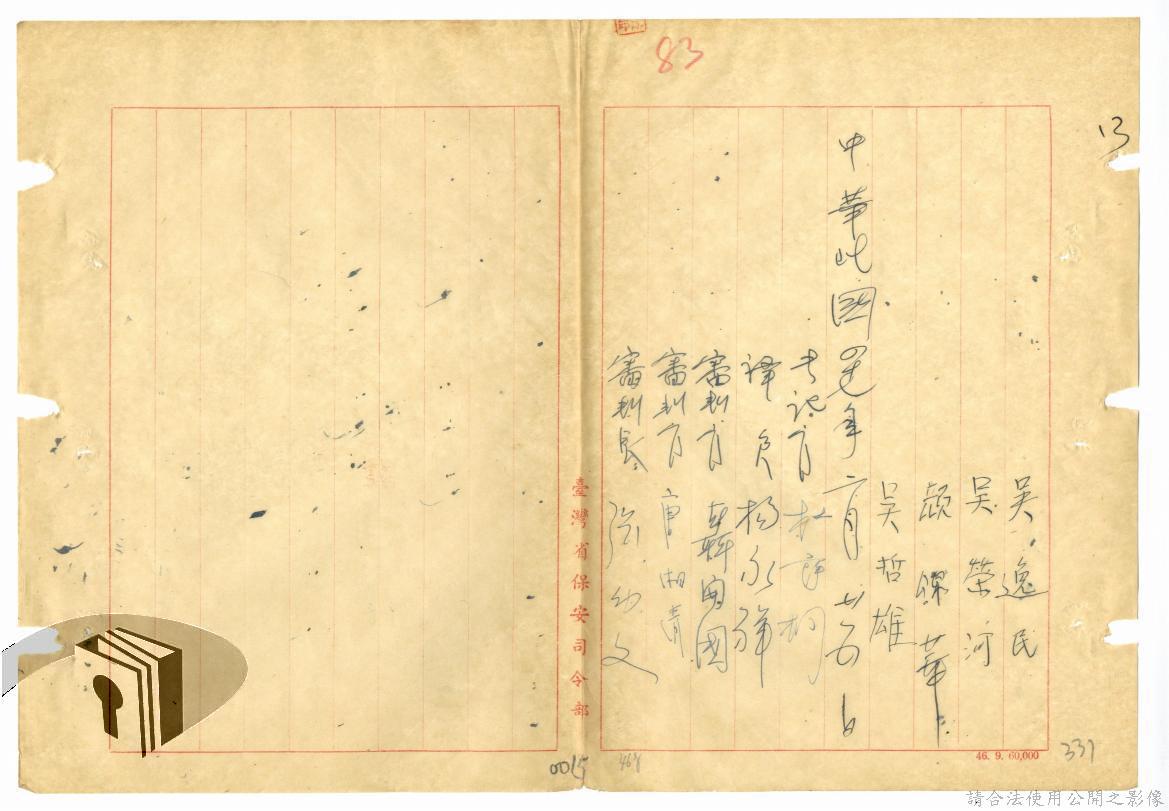 83
13
吳逸民
吳榮河
顏錦華
吳哲雄
中華民國 年 月廿五日
書記官
譯員 楊永
審判官 聶開國
審判官 唐湘清
審判長 張幼文
臺灣省保安司令部
46. 9. 60,000
331
0015
468
請合法使用公開之影像